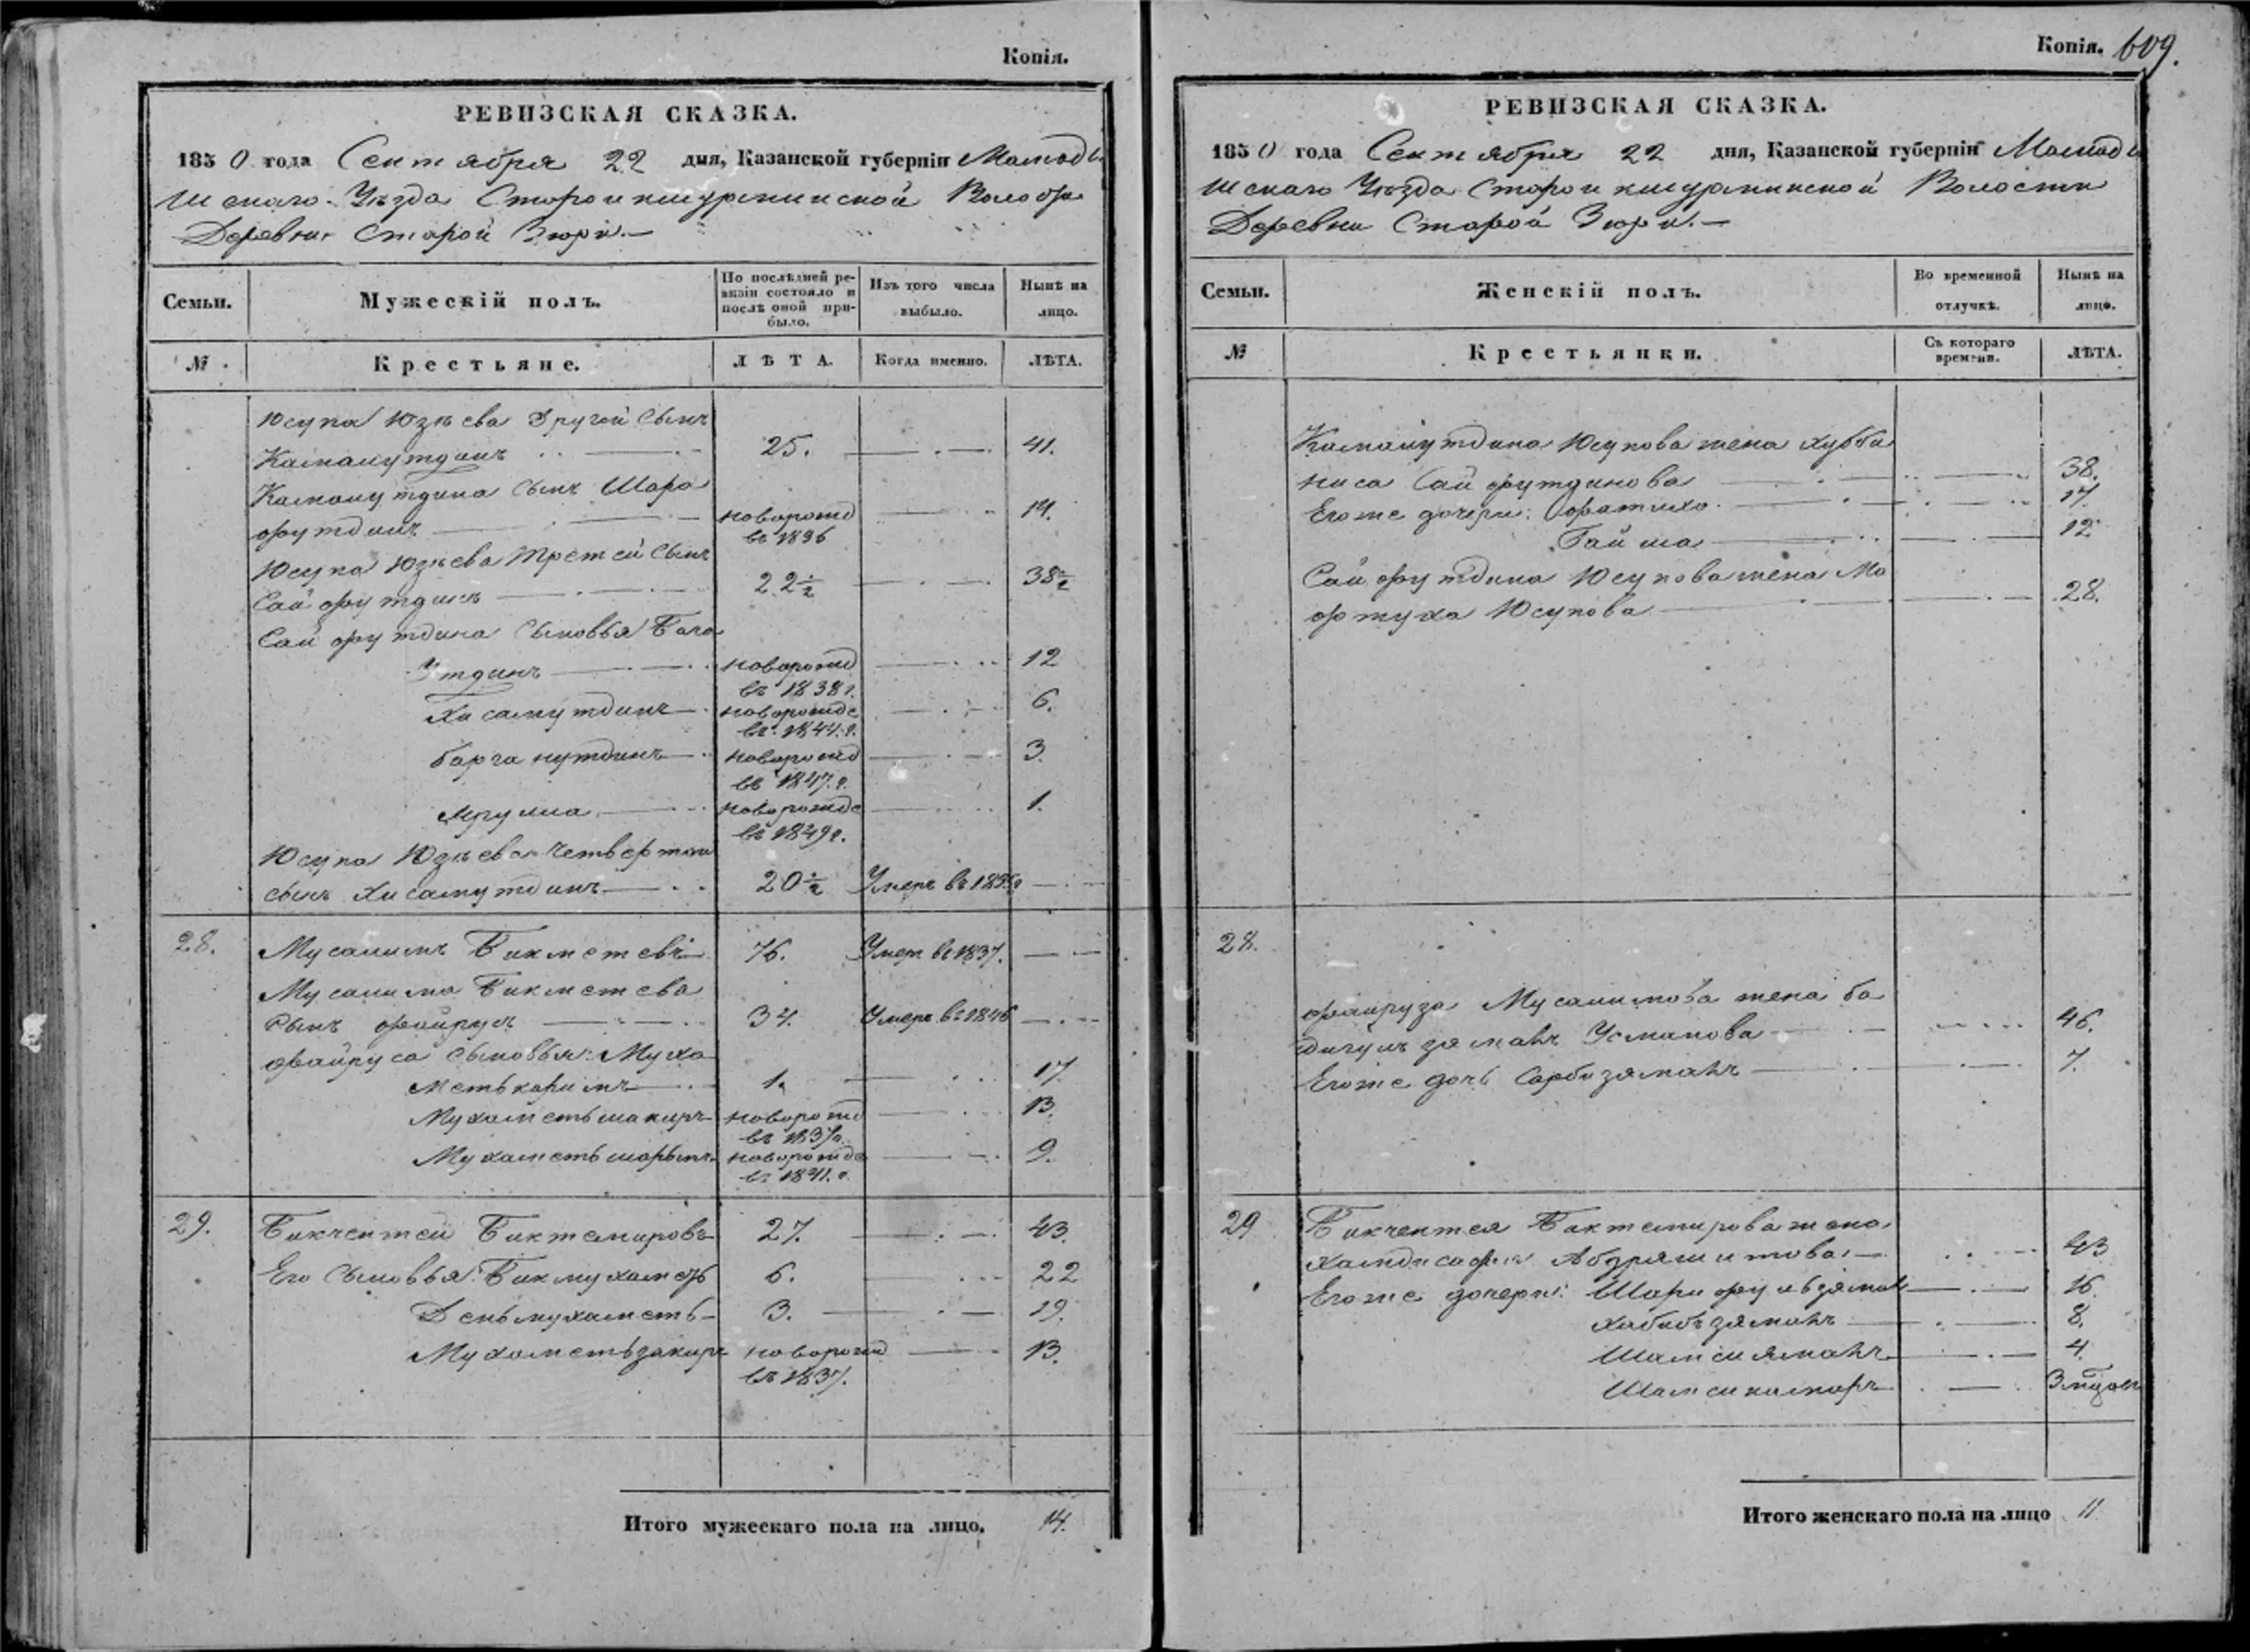 Копія.
РЕВИЗСКАЯ СКАЗКА.
1850 года Сентября 22 дня, Казанской губерніи Мамады
шскаго Уѣзда Староикшурминской Волости
Деревни Старой Зюри.—
Семьи.
Мужескій полъ.
По послѣдней ре-
визіи состояло и
послѣ оной при-
было.
Изъ того числа
выбыло.
Нынѣ на
лицо.
№
Крестьяне.
ЛѢТА.
Когда именно.
ЛѢТА.
Юсупа Юзѣева другой сынъ
Камалутдинъ 25. 41.
Камалутдина сынъ Шара
футдинъ новорожд 14.
въ 1836
Юсупа Юзѣева третей сынъ
Сайфутдинъ 22½ 38½
Сайфутдина сыновья Бага
Утдинъ новорожд 12
въ 1838г.
Хисамутдинъ новорожде 6.
въ 1844.г.
барганутдинъ новорожд 3.
въ 1847.г.
новорожде 1.
въ 1849г.
Юсупа Юзѣева четвертой
сынъ Хисамутдинъ 20½ Умеръ въ
28. Мусалимъ Бикметевъ 76. Умеръ въ 1837.
Мусалима Бикметева
сынъ файрусъ 34. Умеръ въ 1846
файруса сыновья: Муха
меткаримъ 1. 17.
Мухаметьшакиръ новорожд 13.
въ 1837г.
Мухаметьшарыпъ новорожде 9.
въ 1841.г.
29. Бикчентей Биктемировъ 27. 43.
Его сыновья: Бикмухаметь 6. 22
Деньмухаметь 3. 19.
Мухаметьзакиръ новорожд 13.
въ 1837.
Итого мужескаго пола на лицо. 14.
Копія. 609.
РЕВИЗСКАЯ СКАЗКА.
1850 года Сентября 22 дня, Казанской губерніи Мамады
шскаго Уѣзда Староикшурминской Волости
Деревни Старой Зюри.—
Семьи.
Женскій полъ.
Во временной
отлучкѣ.
Нынѣ на
лицо.
№
Крестьянки.
Съ котораго
времени.
ЛѢТА.
Камалутдина Юсупова жена хубби
ниса Сайфутдинова 38.
Егоже дочери: фатиха 17.
Гайша 12
Сайфутдина Юсупова жена Ма
фтуха Юсупова 28.
28.
файруза Мусалимова жена ба
дигулъ зямалъ Усманова 46.
Егоже дочь Сарбизямалъ 7.
29 Бикчентея Биктемирова жена
Абдряшитова 43
Егоже дочери: 16.
хабибъзямалъ 8.
Шамсиямалъ 4.
Шамсикамаръ 3 мѣцов
Итого женскаго пола на лицо 11